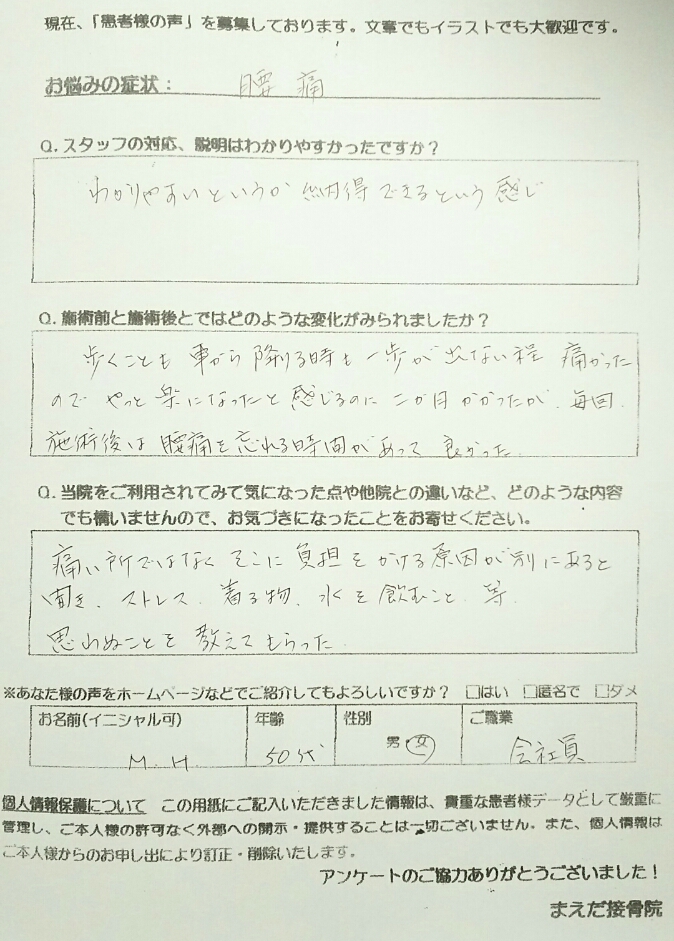 現在、「患者様の声」を募集しております。文章でもイラストでも大歓迎です。
お悩みの症状： 腰痛
Q. スタッフの対応、説明はわかりやすかったですか？
わかりやすいというか 納得できるという感じ
Q. 施術前と施術後とではどのような変化がみられましたか？
歩くことも 車から降りる時も 一歩が出ない程 痛かった
ので やっと楽になったと感じるのに 二か月かかったが、毎回、
施術後は腰痛を忘れる時間があって 良かった。
Q. 当院をご利用されてみて気になった点や他院との違いなど、どのような内容
でも構いませんので、お気づきになったことをお寄せください。
痛い所ではなく そこに負担をかける原因が別にあると
聞き、ストレス、着る物、水を飲むこと、等、
思わぬことを教えてもらった。
※あなた様の声をホームページなどでご紹介してもよろしいですか？ □はい □匿名で □ダメ
お名前(イニシャル可) 年齢 性別 ご職業
M. H. 50代 男・女 会社員
個人情報保護について この用紙にご記入いただきました情報は、貴重な患者様データとして厳重に
管理し、ご本人様の許可なく外部への開示・提供することは一切ございません。また、個人情報は
ご本人様からのお申し出により訂正・削除いたします。
アンケートのご協力ありがとうございました！
まえだ接骨院